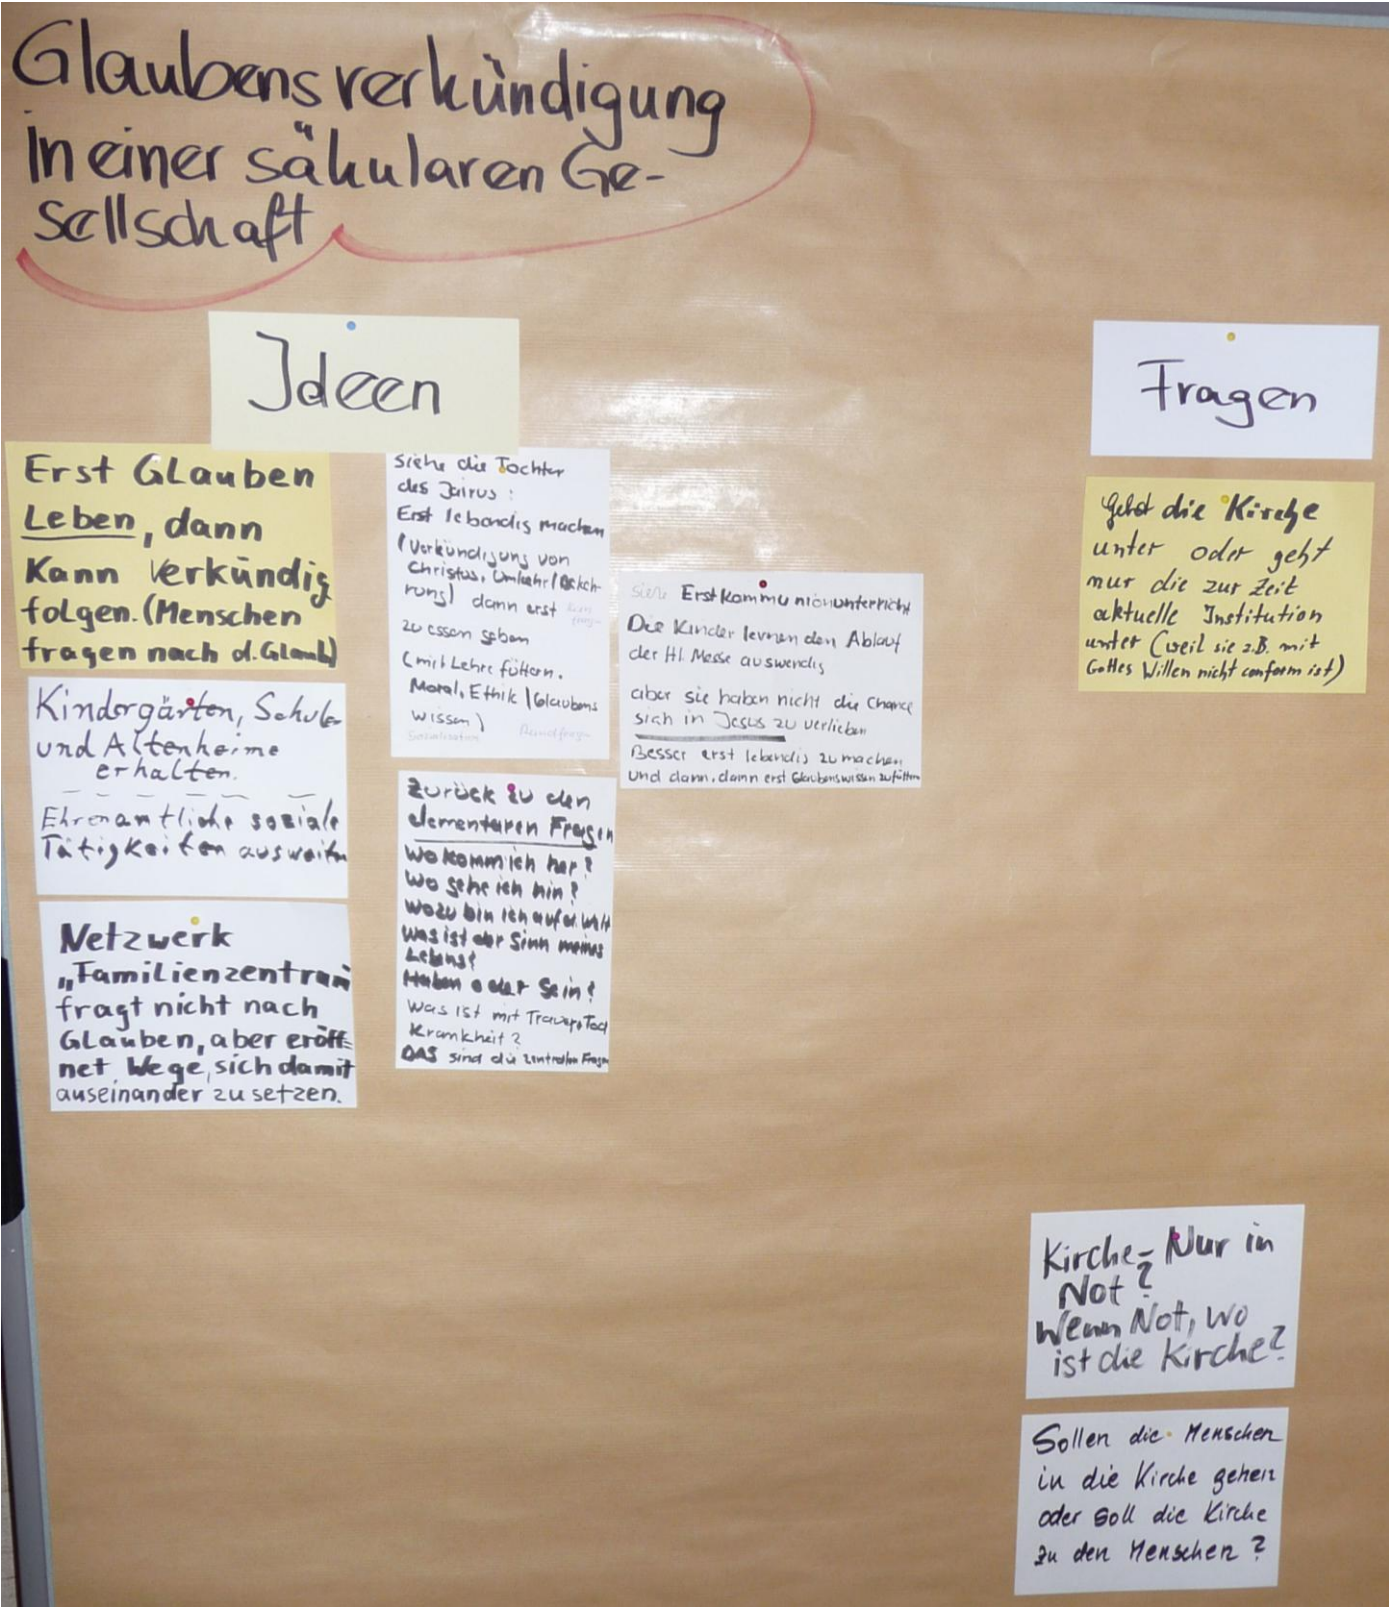 Glaubensverkündigung
in einer säkularen Ge-
sellschaft
Ideen
Erst Glauben
Leben, dann
Kann Verkündig
folgen. (Menschen
fragen nach d. Glaub)
Kindergärten, Schule
und Altenheime
erhalten.
Ehrenamtliche soziale
Tätigkeiten ausweiten
Netzwerk
„Familienzentrum
fragt nicht nach
Glauben, aber eröff=
net Wege, sich damit
auseinander zu setzen.
Siehe die Tochter
des Jairus:
Erst lebendig machen
(Verkündigung von
Christus, Umkehr/Bekeh-
rung) dann erst
zu essen geben
(mit Lehre füttern.
Moral, Ethik/Glaubens
wissen)
Zurück zu den
elementaren Fragen
Wo komm ich her?
Wo gehe ich hin?
Wozu bin ich auf d. Welt
Was ist der Sinn meines
Lebens?
Haben oder Sein?
Was ist mit Trauer, Tod
Krankheit?
DAS sind die zentralen Fragen
siehe Erstkommunionunterricht
Die Kinder lernen den Ablauf
der Hl. Messe auswendig
aber sie haben nicht die Chance
sich in Jesus zu verlieben
Besser erst lebendig zu machen
und dann, dann erst Glaubenswissen zu füttern
Fragen
Gehet die Kirche
unter oder geht
nur die zur Zeit
aktuelle Institution
unter (weil sie z.B. mit
Gottes Willen nicht conform ist)
Kirche - Nur in
Not?
Wenn Not, wo
ist die Kirche?
Sollen die Menschen
in die Kirche gehen
oder soll die Kirche
zu den Menschen?